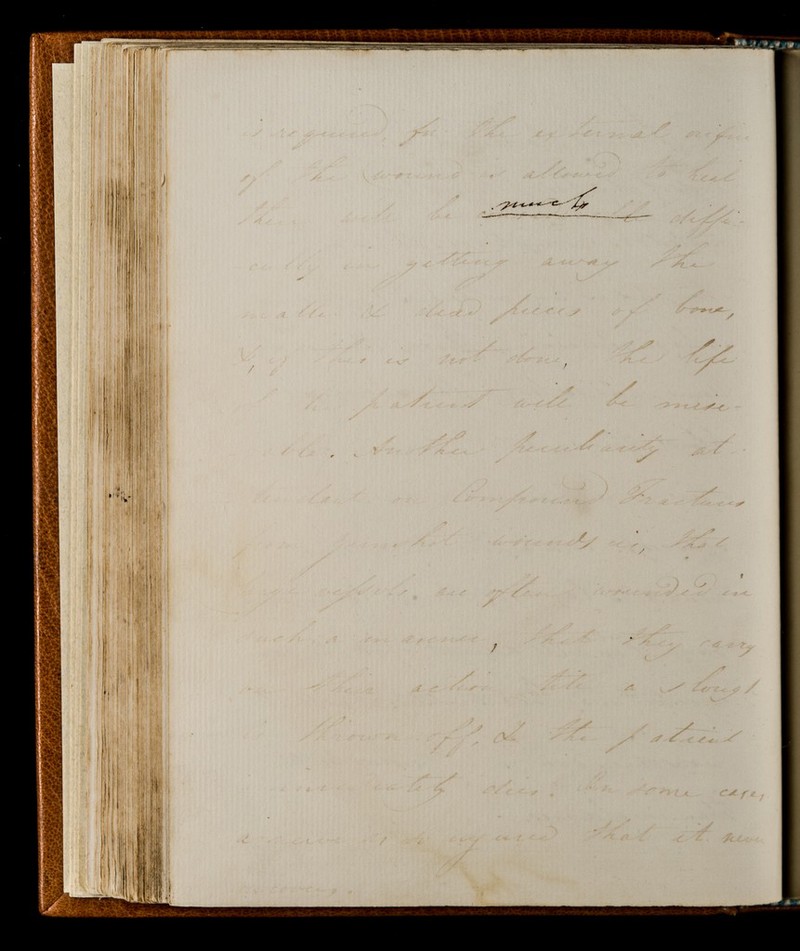 is required, for the external orifice
of the wound is allowed to heal
there will be much diffi-
culty in getting away the
matter & dead pieces of bone,
&, if this is not done, the life
of the patient will be miser-
able. Another peculiarity at-
tendant on Compound Fractures
from gunshot wounds is, that
vessels are often wounded in
such a manner, that they carry
on their action till a slough
is thrown off, & the patient
immediately dies. In some cases
a nerve is so injured that it never
recovers.